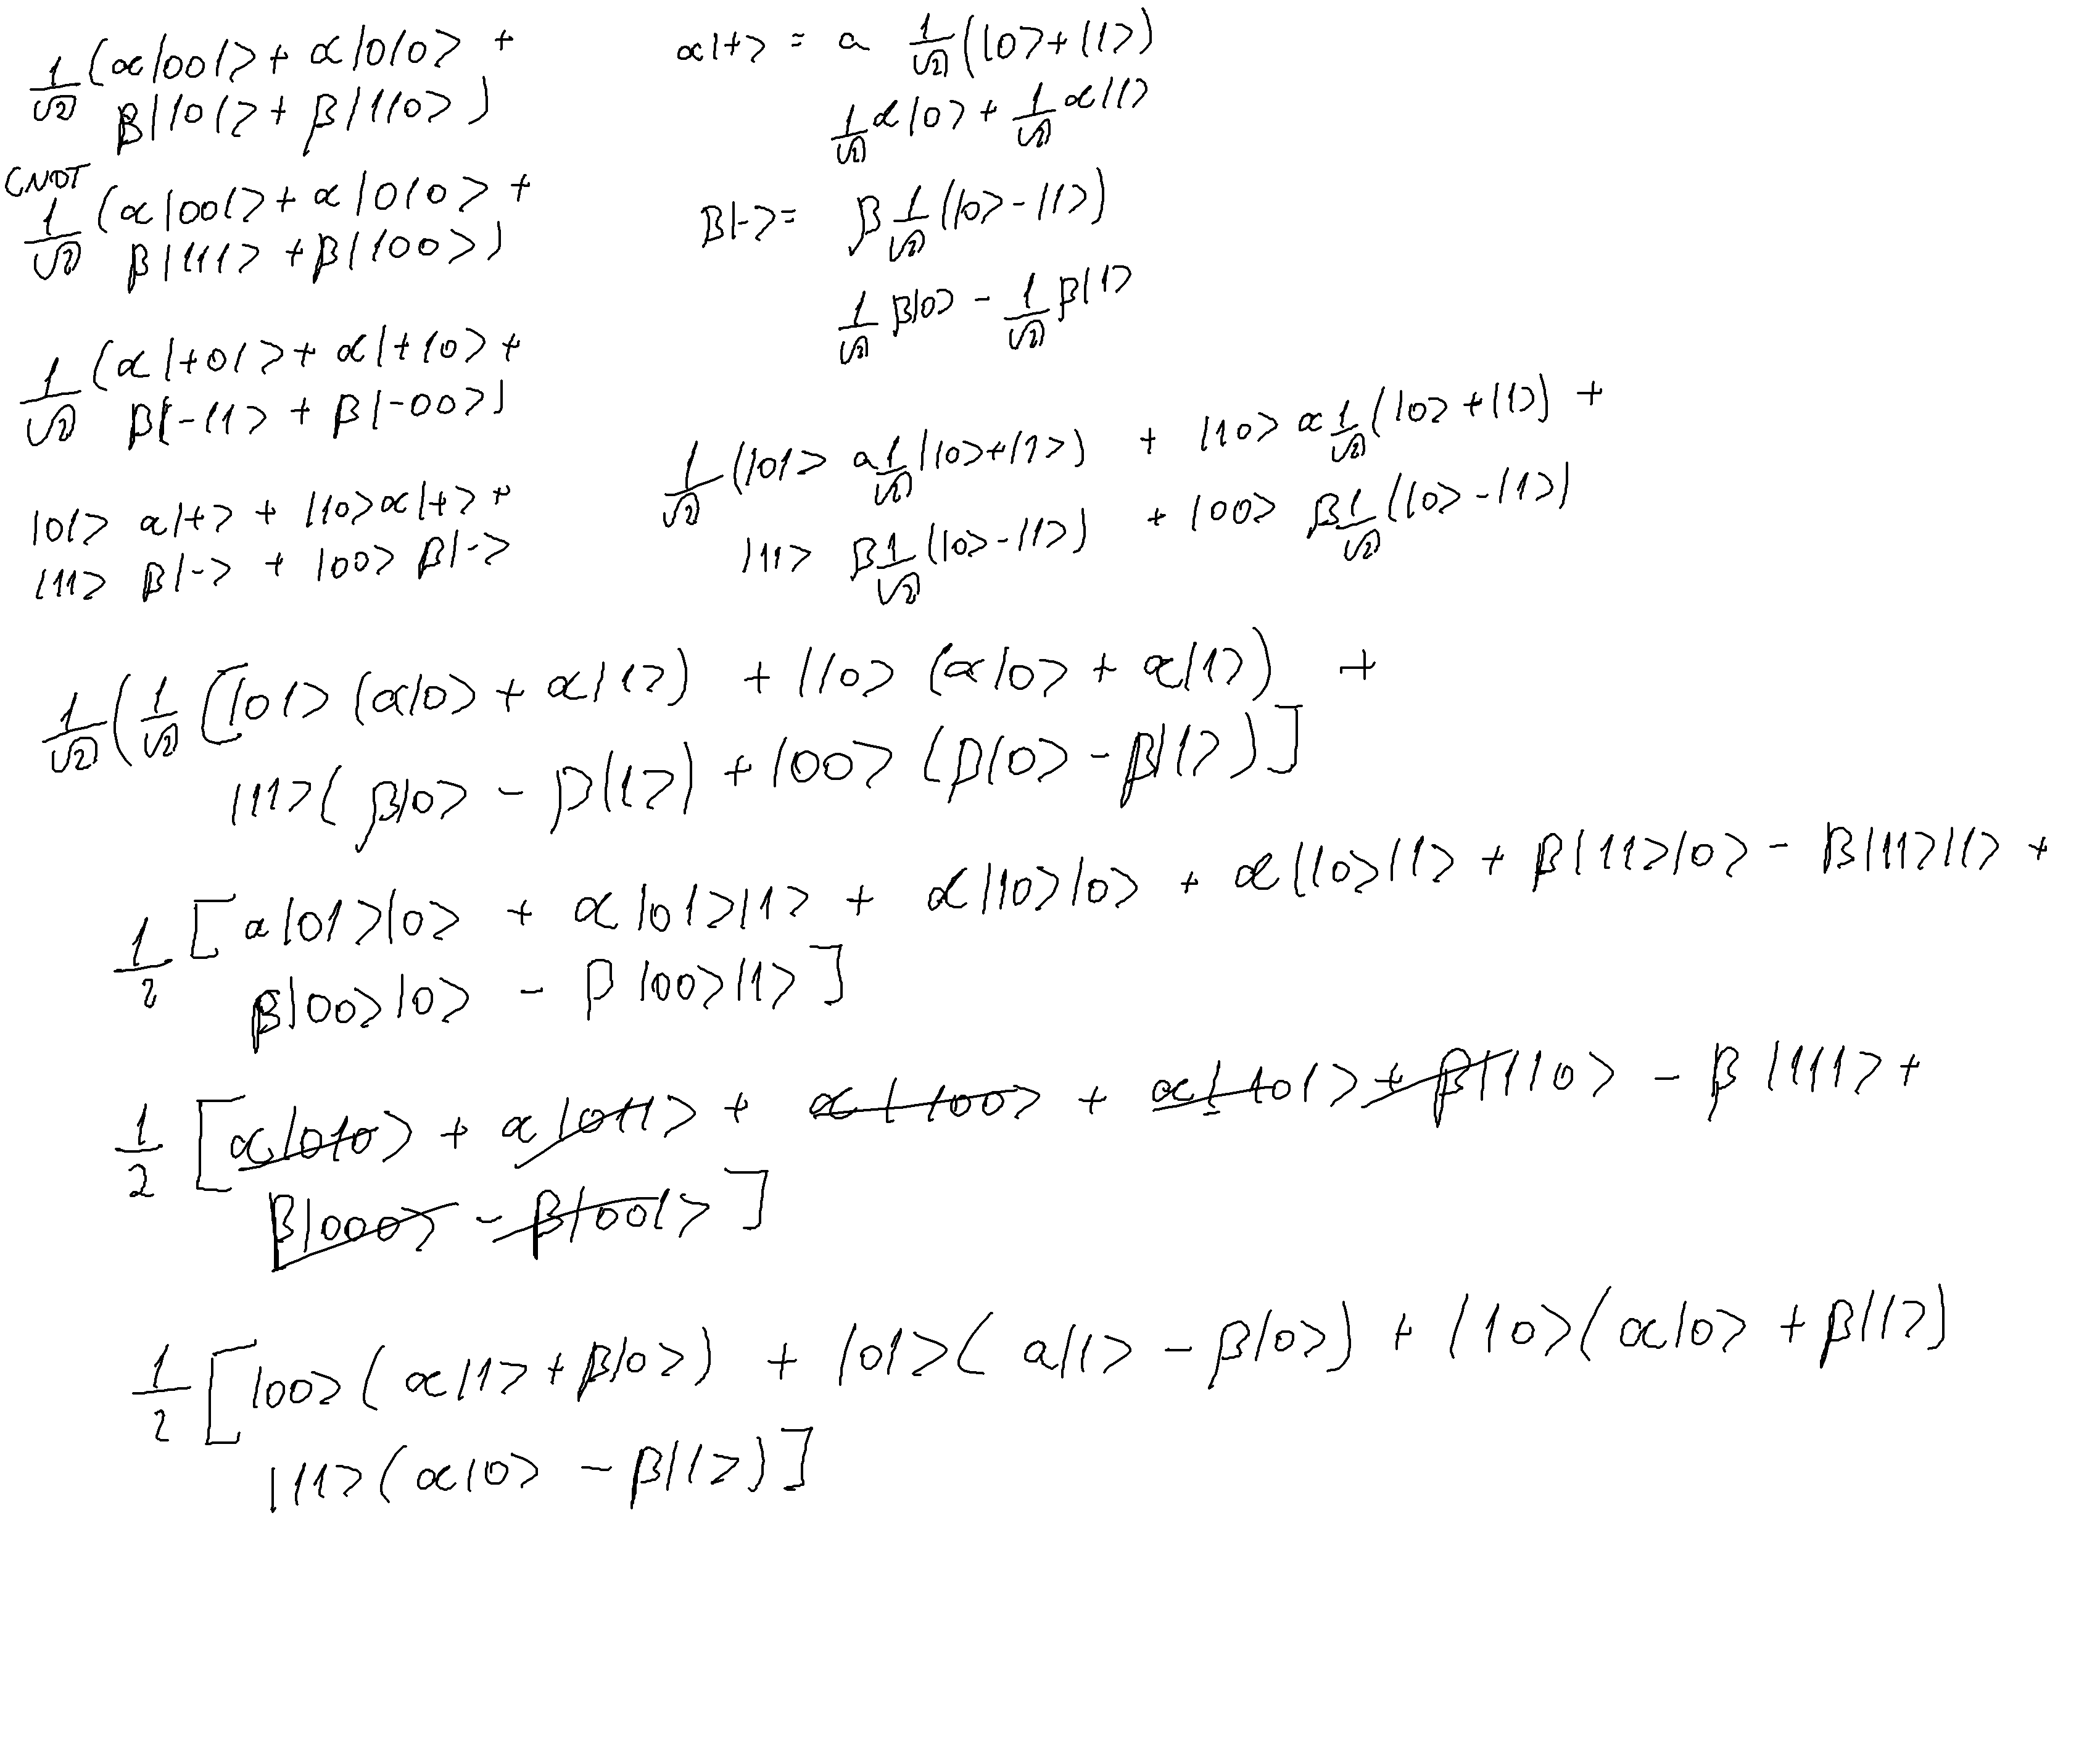 1/√2 (α|001> + α|010> +
β|101> + β|110>)
CNOT
1/√2 (α|001> + α|010> +
β|111> + β|100>)
1/√2 (α|+01> + α|+10> +
β|-11> + β|-00>)
|01> α|+> + |10> α|+> +
|11> β|-> + |00> β|->
α|+> = a 1/√2 (|0> + |1>)
1/√2 α|0> + 1/√2 α|1>
β|-> = β 1/√2 (|0> - |1>)
1/√2 β|0> - 1/√2 β|1>
1/√2 (|01> a 1/√2 (|0> + |1>) + |10> α 1/√2 (|0> + |1>) +
|11> β 1/√2 (|0> - |1>) + |00> β 1/√2 (|0> - |1>)
1/√2 (1/√2 [|01> (α|0> + α|1>) + |10> (α|0> + α|1>) +
|11> (β|0> - β|1>) + |00> (β|0> - β|1>)]
1/2 [α|01>|0> + α|01>|1> + α|10>|0> + α|10>|1> + β|11>|0> - β|11>|1> +
β|00>|0> - β|00>|1>]
1/2 [α|010> + α|011> + α|100> + α|101> + β|110> - β|111> +
β|000> - β|001>]
1/2 [|00> (α|1> + β|0>) + |01> (a|1> - β|0>) + |10> (α|0> + β|1>)
|11> (α|0> - β|1>)]